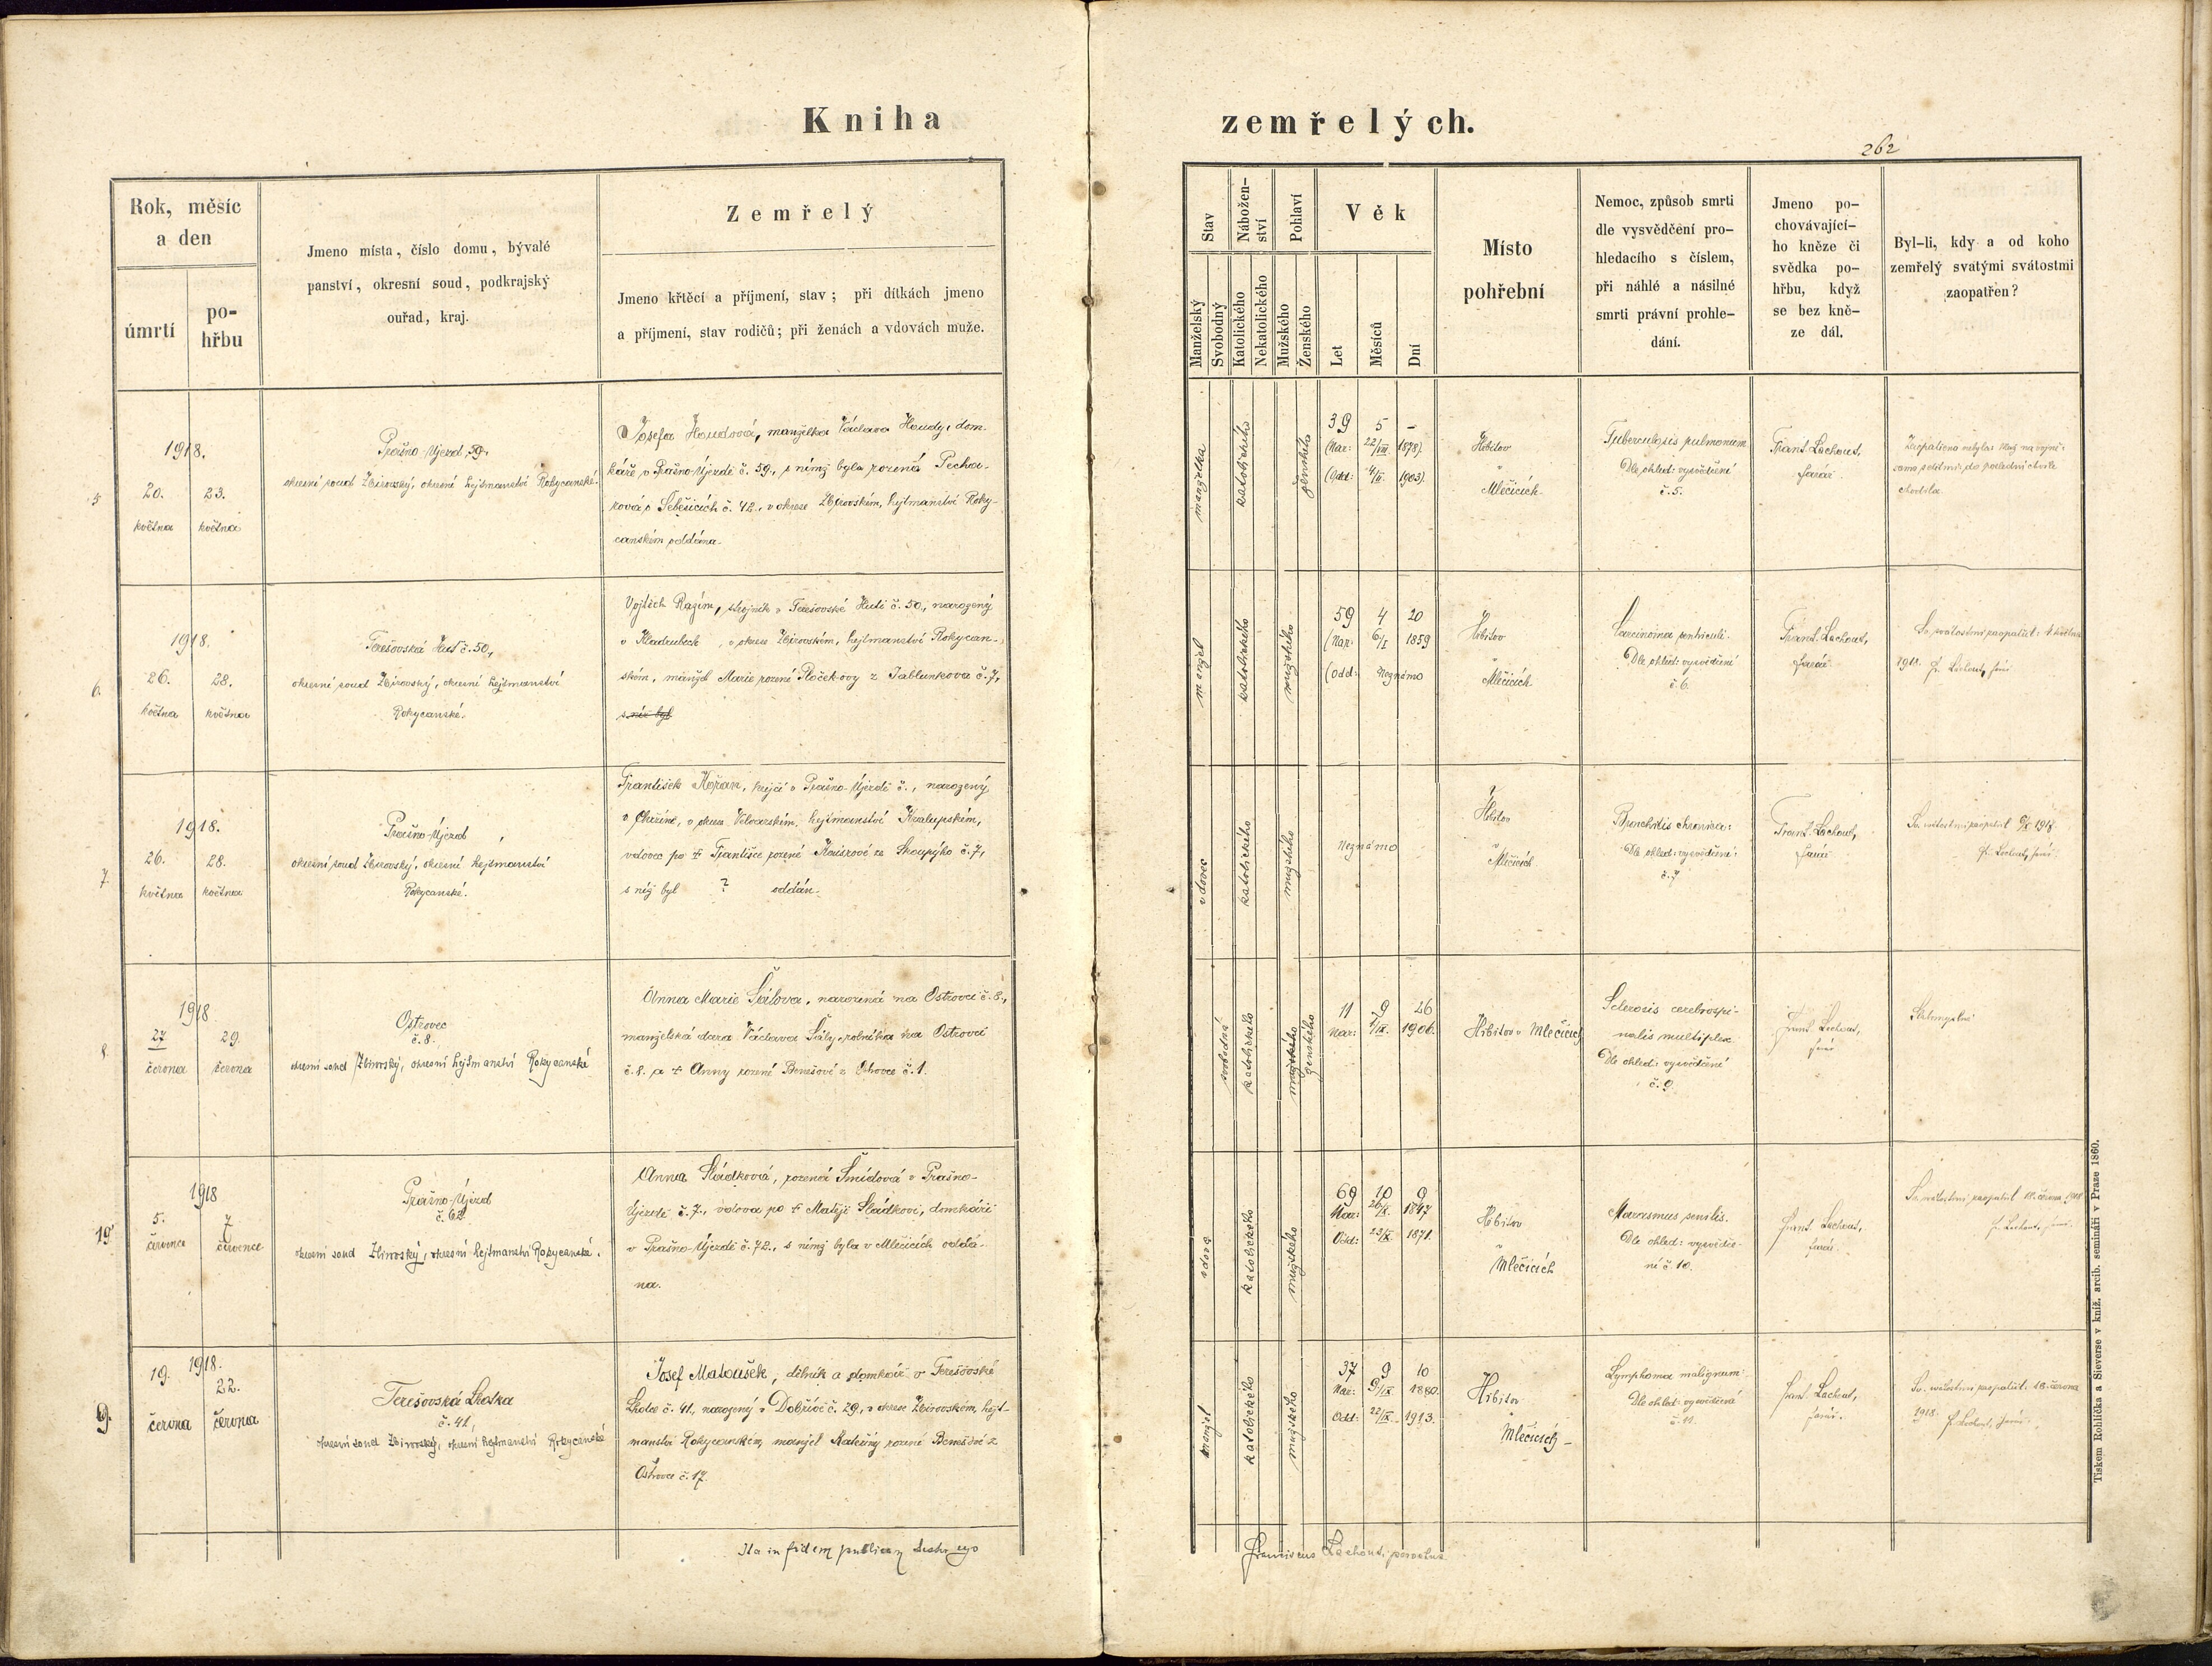 Kniha
zemřelých.
262
Rok, měsíc
a den
úmrtí
po-
hřbu
Jmeno místa, číslo domu, bývalé
panství, okresní soud, podkrajský
ouřad, kraj.
Zemřelý
Jmeno křtěcí a příjmení, stav; při dítkách jmeno
a příjmení, stav rodičů; při ženách a vdovách muže.
Stav
Manželský
Svobodný
Nábožen-
ství
Katolického
Nekatolického
Pohlaví
Mužského
Ženského
Věk
Let
Měsíců
Dní
Místo
pohřební
Nemoc, způsob smrti
dle vysvědčení pro-
hledacího s číslem,
při náhlé a násilné
smrti právní prohle-
dání.
Jmeno po-
chovávající-
ho kněze či
svědka po-
hřbu, když
se bez kně-
ze dál.
Byl-li, kdy a od koho
zemřelý svatými svátostmi
zaopatřen?
5
1918.
20. 23.
května května
Prašno-Újezd, 59.,
okresní soud Zbirovský, okresní hejtmanství Rokycanské.
Josefa Houdová, manželka Václava Houdy, dom-
káře v Prašno-Újezdě č. 59., s nímž byla rozená Pecha-
rová v Sebečicích č. 42., v okrese Zbirovském, hejtmanství Roky-
canském oddána.
manželka
katolického
ženského
39 5 -
(Nar: 22/XII 1878).
(Odd: 4/II. 1903).
Hřbitov
v
Mlečicích.
Tuberculosis pulmonum
Dle ohled: vysvědčení
č. 5.
Frant. Lachout,
farář.
Zaopatřena nebyla
do poslední chvíle
chodila.
6.
1918.
26. 28.
května května
Terešovská Huť č. 50.,
okresní soud Zbirovský, okresní hejtmanství
Rokycanské.
Vojtěch Razím, strojník v Terešovské Huti č. 50., narozený
v Kladrubech, v okrese Zbirovském, hejtmanství Rokycan-
ském, manžel Marie rozené Pločekovy z Jablunkova č. 7,
s níž byl
manžel
katolického
mužského
59 4 20
(Nar: 6/I 1859
(Odd: Neznámo
Hřbitov
v
Mlečicích
Carcinoma ventriculi.
Dle ohled: vysvědčení
č. 6.
Frant. Lachout,
farář.
Sv. svátostmi zaopatřil: května
1918. Fr. Lachout, farář
7.
1918.
26. 28.
května května
Prašno-Újezd
okresní soud Zbirovský, okresní hejtmanství
Rokycanské.
František Kořan, krejčí v Prašno-Újezdě č. , narozený
v , v okrese Velvarském, hejtmanství Kralupském,
vdovec po † Františce rozené ze Skoupýho č. 7,
s níž byl ? oddán.
vdovec
katolického
mužského
Neznámo
Hřbitov
v
Mlečicích
Bronchitis chronica:
Dle ohled: vysvědčení:
č. 7
Frant. Lachout,
farář
Sv. svátostmi zaopatřil 1918.
Fr. Lachout, farář.
8.
1918
27 29.
června června
Ostrovec
č. 8.
okresní soud Zbirovský, okresní hejtmanství Rokycanské
Anna Marie Šálova, narozená na Ostrovci č. 8.,
manželská dcera Václava Šály, rolníka na Ostrovci
č. 8. a † Anny rozené Benešové z Ostrovce č. 1.
svobodná
katolického
mužského
ženského
11 9 26
Nar: 1/IX. 1906.
Hřbitov v Mlečicích
Sclerosis cerebrospi-
nalis multiplex
Dle ohled: vysvědčení
č. 9.
Frant. Lachout,
farář
Slabomyslná
19
1918
5. 7
července července
Prašno-Újezd
č. 62
okresní soud Zbirovský, okresní hejtmanství Rokycanské.
Anna Sládková, rozená Šmídová v Prašno-
Újezdě č. 7., vdova po † Matěji Sládkovi, domkáři
v Prašno-Újezdě č. 72., s nímž byla v Mlečicích oddá-
na.
vdova
katolického
mužského
69 10 9
Nar: 26/X. 1847
Odd: 23/X. 1871.
Hřbitov
v
Mlečicích
Marasmus senilis.
Dle ohled: vysvědče-
ní č. 10.
Frant. Lachout,
farář.
Sv. svátostmi zaopatřil června 1918
Fr. Lachout, farář.
9.
1918.
19. 22.
června června
Terešovská Lhotka
č. 41,
okresní soud Zbirovský, okresní hejtmanství Rokycanské
Josef Matoušek, dělník a domkář v Terešovské
Lhotce č. 41., narozený v Dobříči č. 29., v okrese Zbirovském, hejt-
manství Rokycanském, manžel Kateřiny rozené Benešové z
Ostrovce č. 17.
manžel
katolického
mužského
37 9 10
Nar: 9/IX 1880.
Odd: 22/IX. 1913.
Hřbitov
v
Mlečicích
Lymphoma malignum
Dle ohled: vysvědčení
č. 11.
Frant. Lachout,
farář.
Sv. svátostmi zaopatřil: 18. června
1918. Fr. Lachout, farář.
Ita in fidem publicam testor ego
Franciscus Lachout, parochus
Tiskem Rohlíčka a Sieverse v kníž. arcib. semináři v Praze 1860.